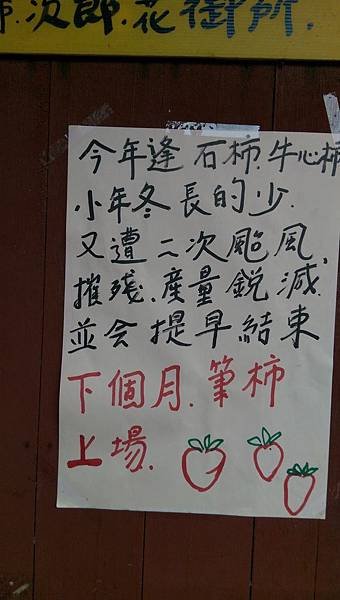 次郎.花御所.
今年逢石柿.牛心柿
小年冬長的少.
又遭二次颱風、
摧殘.產量銳減.
並会提早結束
下個月.筆柿
上場.